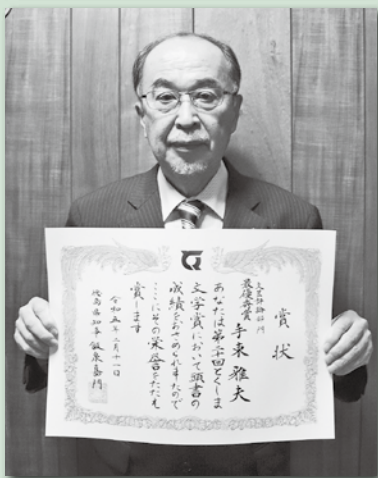 賞状
文芸評論部門
最優秀賞 手束雅夫
あなたは第二十回とくしま
文学賞において頭書の
成績をおさめられましたので
ここにその栄誉をたたえ
賞します
令和五年二月十一日
徳島県知事 飯泉嘉門